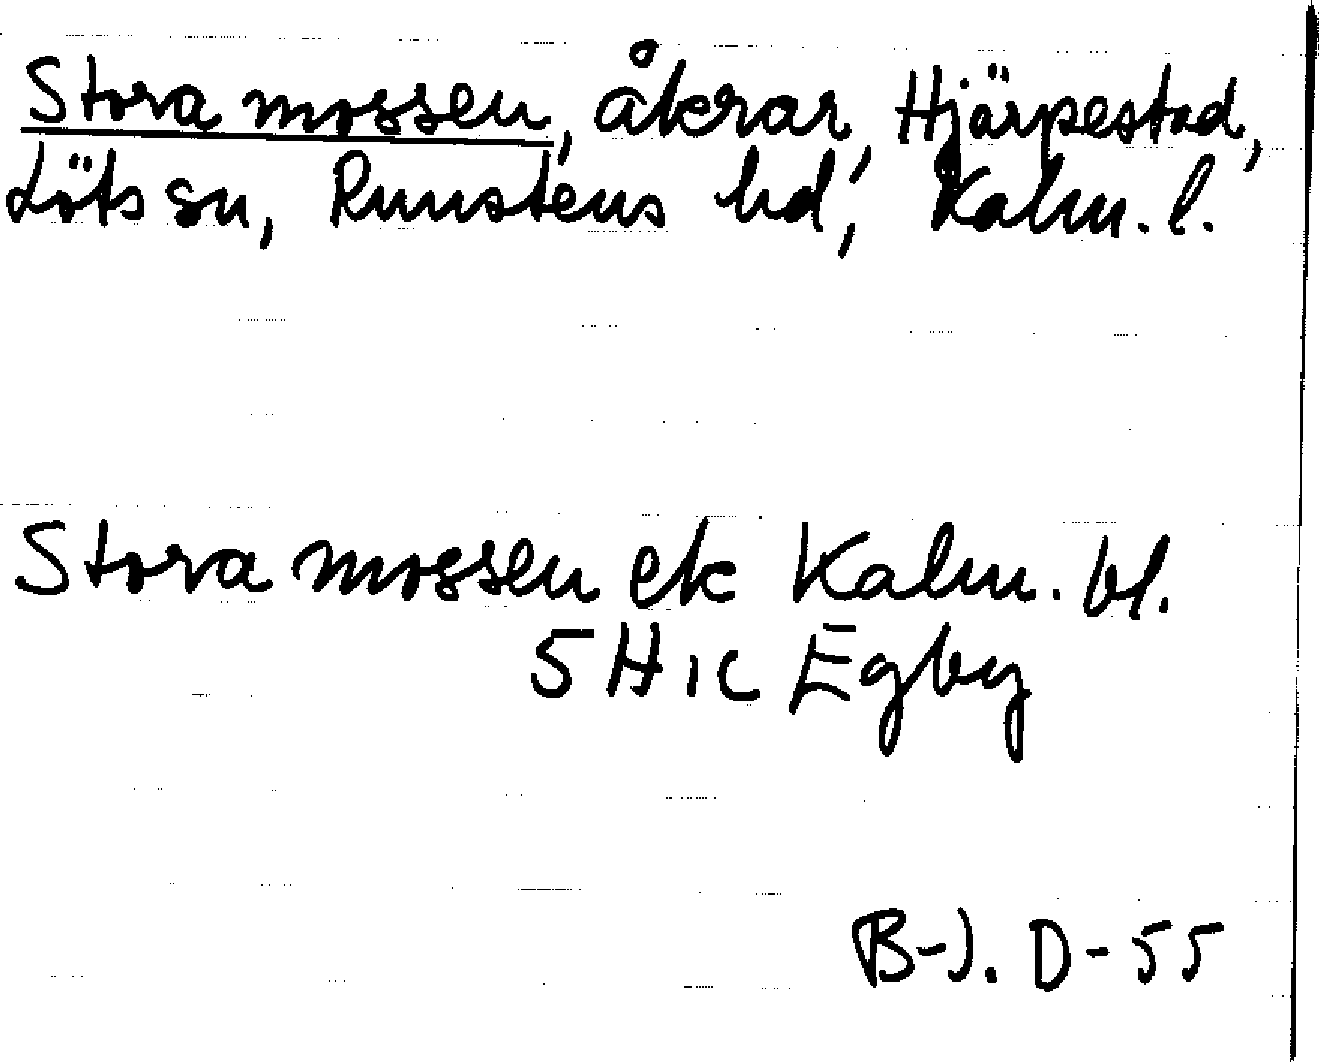 Stora mossen, åkrar, Hjärpestad,
Löts sn, Runstens hd, Kalm. l.
Stora mossen ek Kalm. bl.
5H1c Egby
B-J. D-55